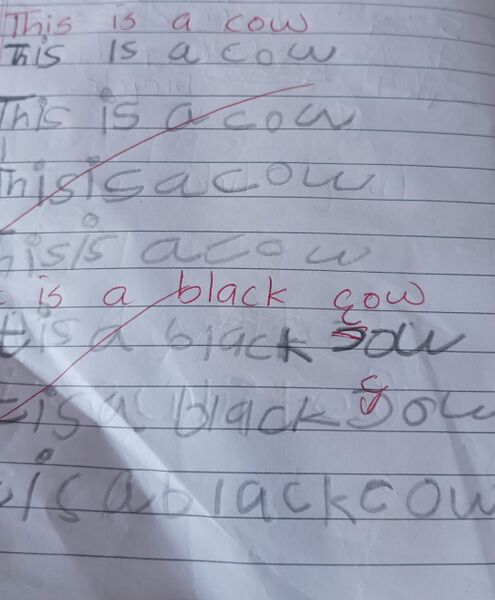 This is a cow
This is a cow
This is a cow
Thisisacow
hisis acow
t is a black cow
t is a black cow
tisa black cow
t isablackcow